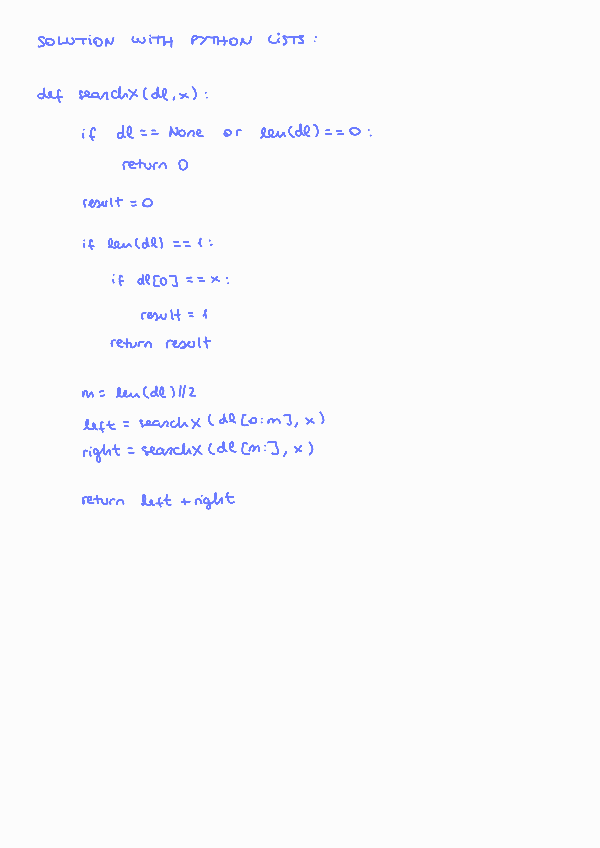 SOLUTION WITH PYTHON LISTS :
def searchX(dl,x):
if dl == None or len(dl)==0:
return 0
result = 0
if len(dl) == 1:
if dl[0] == x:
result = 1
return result
m = len(dl)//2
left = searchX (dl[0:m], x)
right = searchX (dl[m:], x)
return left + right